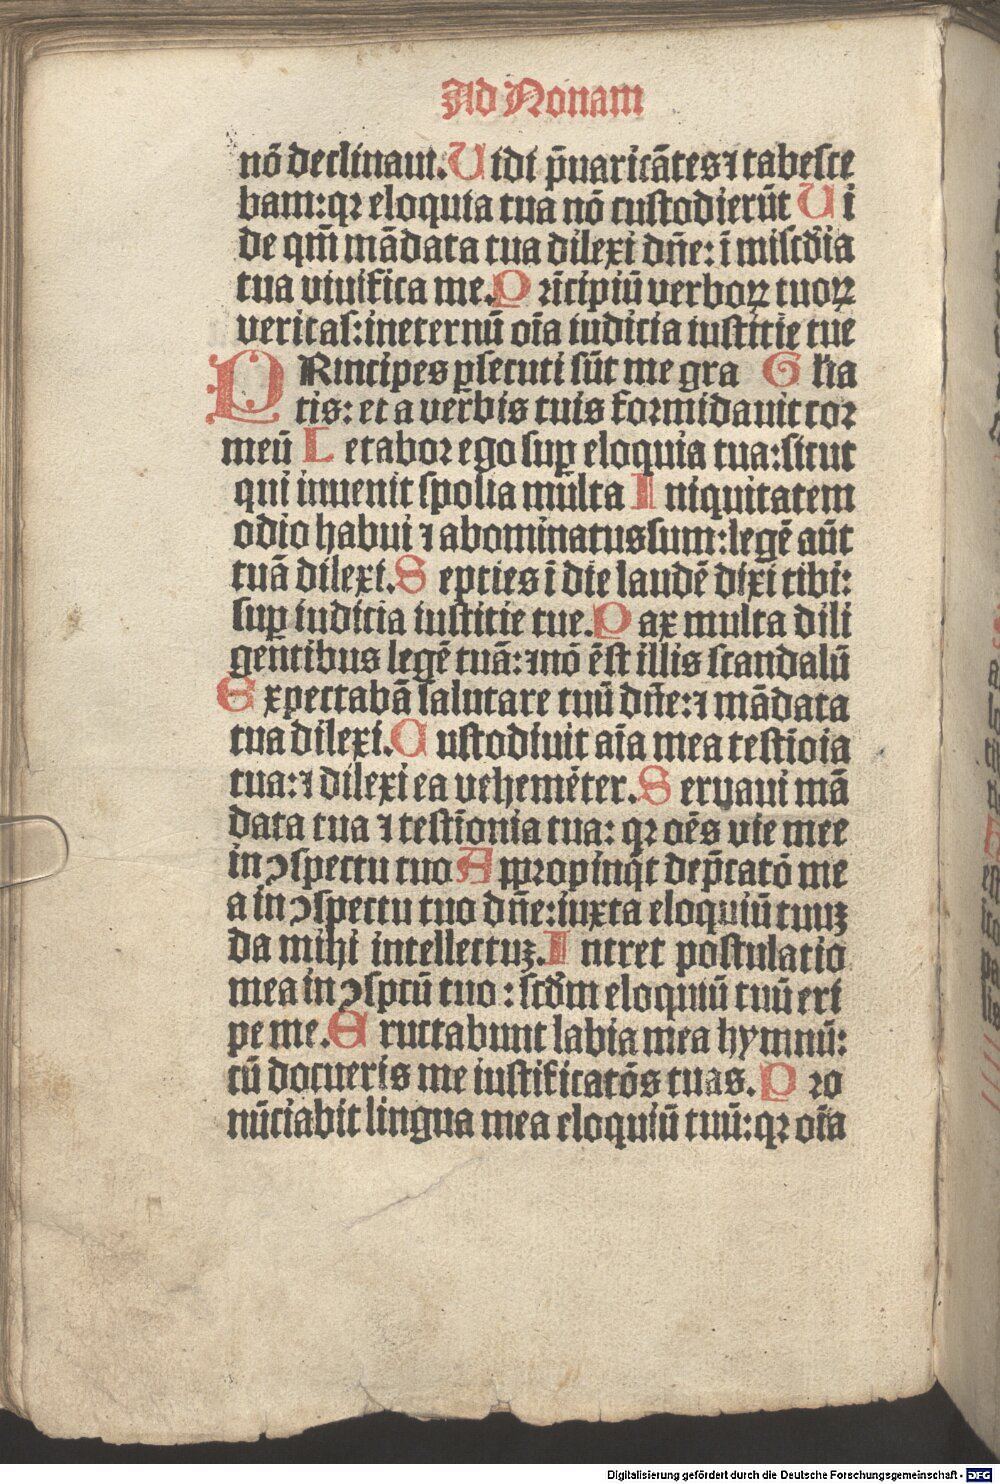 Ad Nonam
nō declinaui. Uidi p̄uaricātes ⁊ tabesce
bam: qꝛ eloquia tua nō custodierūt Ui
de qm̄ mādata tua dilexi dn̄e: ī miscd̄ia
tua viuifica me. Pꝛīcipiū verboꝝ tuoꝝ
veritas: ineternū oīa iudicia iustitie tue
PRincipes ꝑsecuti sūt me gra Glīa
tis: et a verbis tuis formidauit coꝛ
meū Letaboꝛ ego suꝑ eloquia tua: sicut
qui inuenit spolia multa Iniquitatem
odio habui ⁊ abominatus sum: legē aūt
tuā dilexi. Septies ī die laudē dixi tibi:
suꝑ iudicia iustitie tue. Pax multa dili
gentibus legē tuā: ⁊ nō ēst illis scandalū
Expectabā salutare tuū dn̄e: ⁊ mādata
tua dilexi. Custodiuit aīa mea testīoia
tua: ⁊ dilexi ea vehemēter. Seruaui mā
data tua ⁊ testīonia tua: qꝛ oēs vie mee
in ↄspectu tuo Appꝛopinq̄t dep̄catō me
a in ↄspectu tuo dn̄e: iuxta eloquiū tuuꝫ
da mihi intellectuꝫ. Intret postulatio
mea in ↄspcū tuo: scd̄m eloquiū tuū eri
pe me. Eructabunt labia mea hymnū:
cū docueris me iustificatōs tuas. Pꝛo
nūciabit lingua mea eloquiū tuū: qꝛ oīa
Digitalisierung gefördert durch die Deutsche Forschungsgemeinschaft - DFG